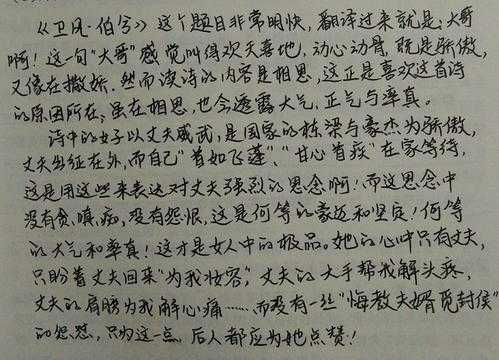 《卫风·伯兮》这个题目非常明快，翻译过来就是：大哥
啊！这一句"大哥"感觉叫得欢天喜地，动心动骨，既是骄傲，
又像在撒娇。然而读诗的内容是相思，这正是喜欢这首诗
的原因所在，虽在相思，也会透露大气、正气与率真。
诗中的女子以丈夫威武，是国家的栋梁与豪杰为骄傲，
丈夫出征在外，而自己"首如飞蓬"、"甘心首疾"在家等待，
这是用这些来表达对丈夫强烈的思念啊！而这思念中
没有贪、嗔、痴，没有怨恨，这是何等的豪迈和坚定！何等
的大气和率真！这才是女人中的极品。她的心中只有丈夫，
只盼着丈夫回来"为我妆容"，丈夫的大手帮我解头疼，
丈夫的肩膀为我解心痛……而没有一丝"悔教夫婿觅封侯"
的怨怼，只为这一点，后人都应为她点赞！